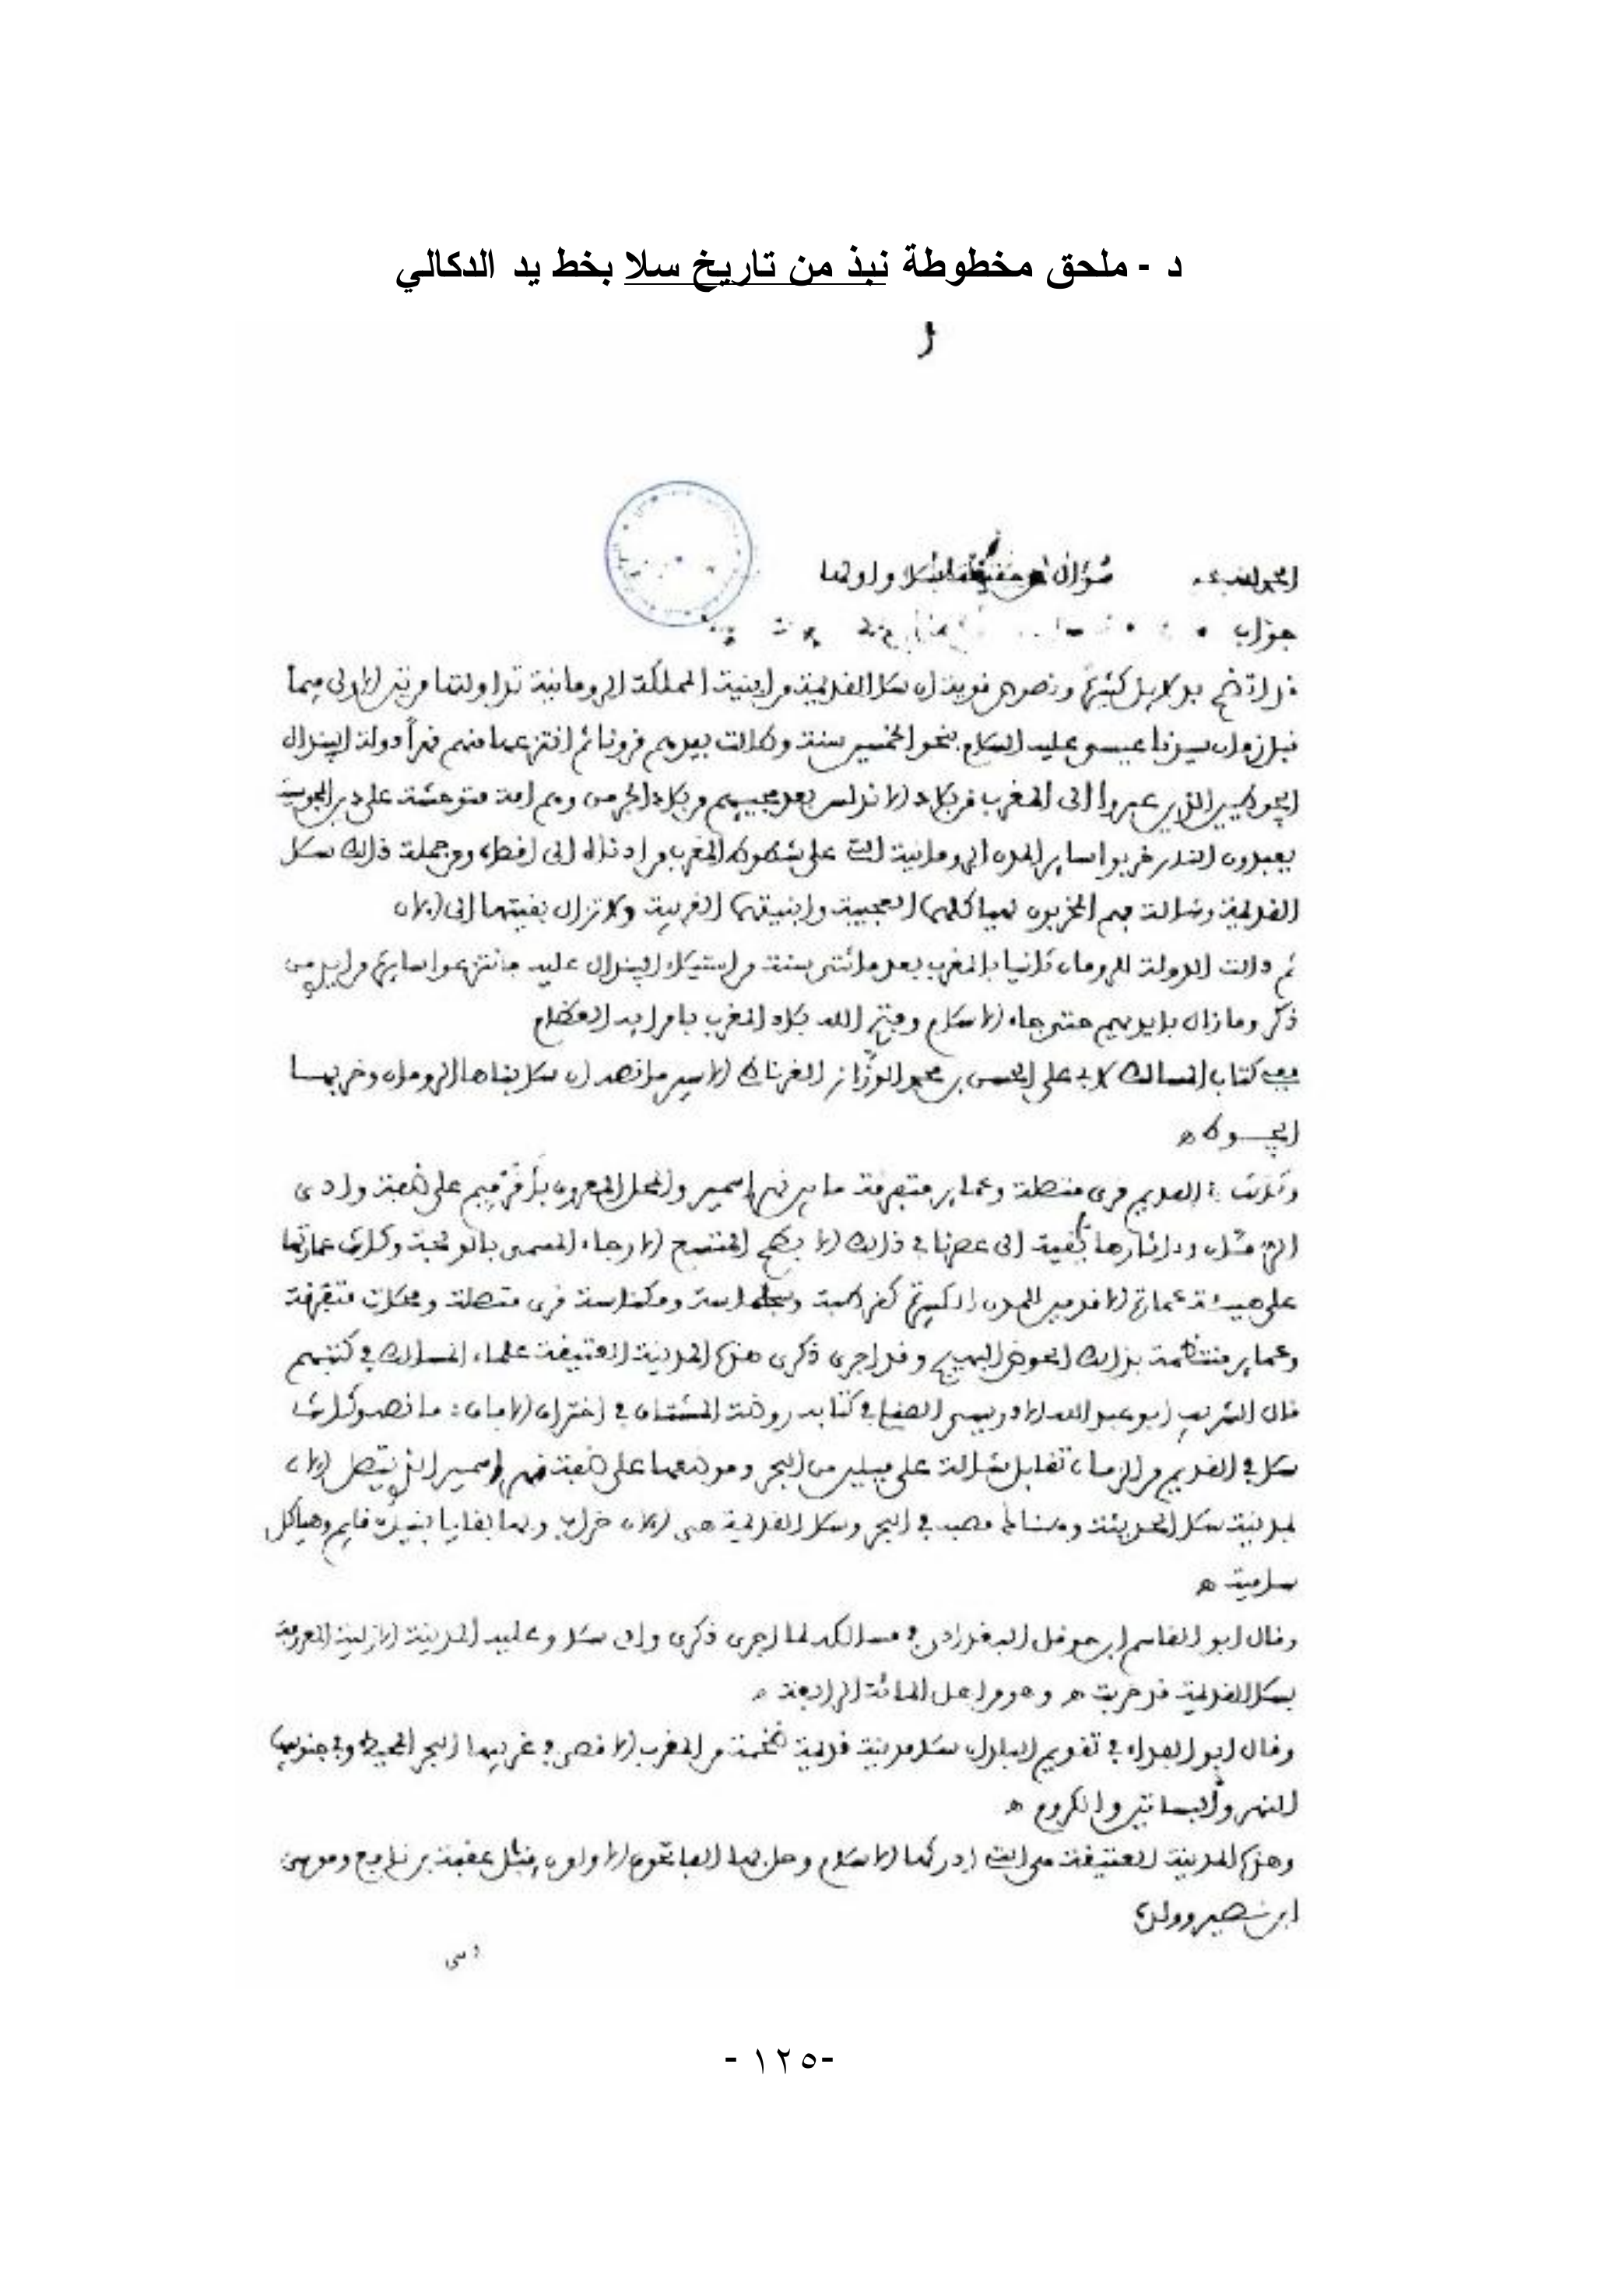 د - ملحق مخطوطة نبذ من تاريخ سلا بخط يد الدكالي
الحمد لله سؤال سلا واولها
جواب
قد اتضح بدلايل كثيرة ونصوص قوية ان سلا القديمة من ابنية المملكة الرومانية تداولتها من يد الاولى فيما
قبل زمان سيدنا عيسى عليه السلام بنحو الخمسين سنة وكانت بيدهم قرونا ثم افتزعها منهم قهراً دولة الپندال
الجوطيين الذين عبروا الى المغرب من بلاد الاندلس بعد مجييهم من بلاد الجرمن وهم امة متوحشة على دين المجوسية
يعبدون النار خربوا ساير المدن الرومانية التي على شطوط المغرب من ادناه الى اقصاه ومن جملة ذلك سلا
القديمة وشالة فهم المخربون لهياكلهما العجيبة وابنيتهما الغريبة ولا تزال بقيتها الى الان
ثم دالت الدولة للرومان ثانيا بالمغرب بعد مائتي سنة من استيلاء الپندال عليه فانتزعوا سايره من ايدي من
ذكر وما زال بايديهم حتى جاء الاسلام وفتح الله بلاد المغرب بامر ايه العظام
ففي كتاب المسالك لابي علي الحسن بن محمد الوزان الغرناطي الاسير ما نصه ان سلا بناها الرومان وخربها
الجـوط ه
وكانت في القديم قرى متصلة وعماير متفرقة ما بين نهر اسمير والمحل المعروف على ضفة وادي
الرمان وداثارها بقية الى عصرنا في ذلك الابطح المتسع الارجاء المسمى بالولجة وكانت عمارتها
على هيئة عمارة الاقدمين للمدن الكبيرة كقرطبة وسجلماسة ومكناسة قرى متصلة ومحلات متفرقة
وعماير منتظمة بذلك الحوض البهيج وقد اجرى ذكرى هذه المدينة العتيقة علماء المسالك في كتبهم
قال الشريف ابو عبد الله الادريسي الصقلي في كتابه روضة المشتاق في اختراق الافاق: ما نصه وكانت
سلا في القديم من الزمان تقابل شالة على ميلين من البحر وموضعها على ضفة نهر اسمير الذي يتصل الان
بمدينة سلا الحديثة ومناك مصبه في البحر وسلا القديمة هي الان خراب وبها بقايا بنيان قايم وهياكل
سامية ه
وقال ابو القاسم ابن حوقل البغدادي في مسالكه لما اجرى ذكرى وادي سلا وعليه المدينة الازلية المعروفة
بسلا القديمة قد خربت ه وهو من اهل المائة الرابعة ه
وقال ابو الفداء في تقويم البلدان سلا مدينة قديمة ضخمة من المغرب الاقصى في غربيها البحر المحيط وفي جنوبيها
النهر والبساتين والكروم ه
وهذه المدينة العتيقة هي التي ادركها الاسلام وحل بها الفاتحون الاولون مثل عقبة بن نافع وموسى
ابن نصير وولده
- ١٢٥ -